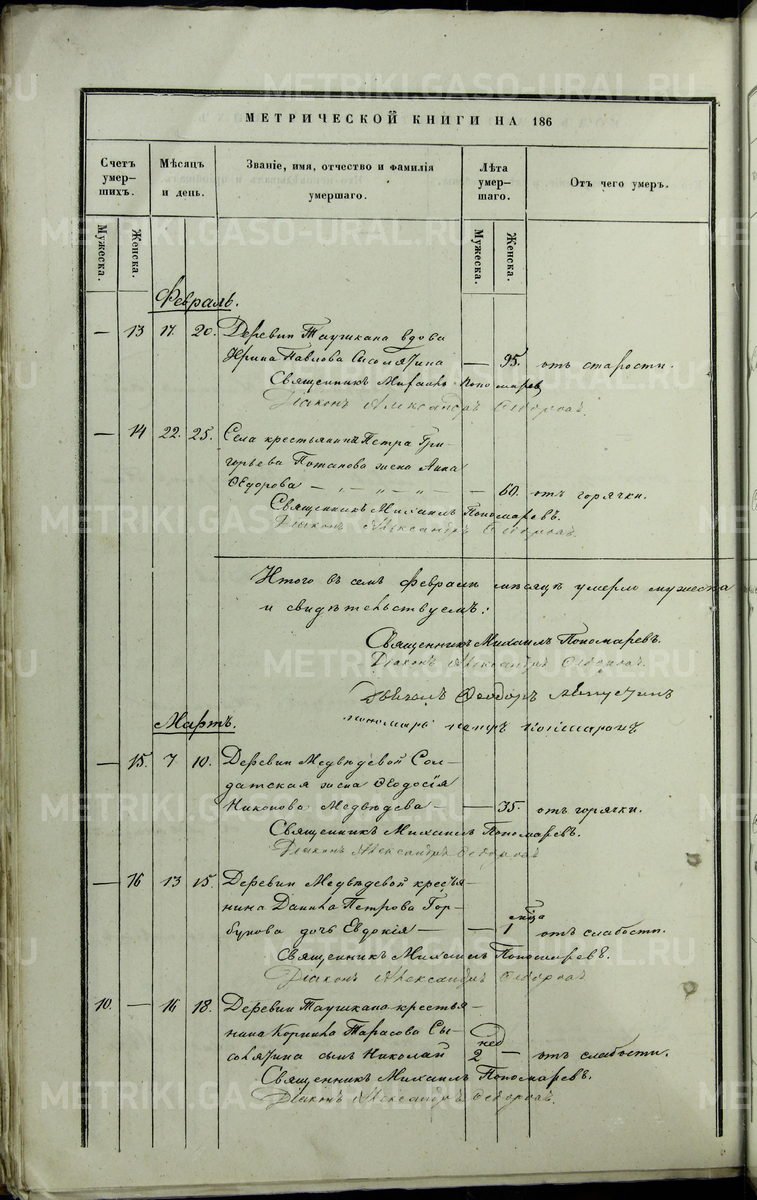 МЕТРИЧЕСКОЙ КНИГИ НА 186
Счетъ умер-шихъ.
Мѣсяцъ и день.
Званіе, имя, отчество и фамилія умершаго.
Лѣта умер-шаго.
Отъ чего умеръ.
Мужеска.
Женска.
Мужеска.
Женска.
Февраль.
— 13 17. 20. Деревни Таушкана вдова
Ирина Павлова Сысолятина — 95. отъ старости.
Священникъ Михаилъ Пономаревъ
Діаконъ Александръ
— 14 22. 25. Села крестьянина Петра Гри-
горьева Потапова жена Анна
Ѳедорова — „ — „ — „ — — 60. отъ горячки.
Священникъ Михаилъ Пономаревъ.
Діаконъ Александръ
Итого въ семъ Февралѣ мѣсяцѣ умерло мужеска
и свидѣтельствуемъ:
Священникъ Михаилъ Пономаревъ.
Діаконъ Александръ
Ѳеодоръ
пономарь петръ
Мартъ.
— 15. 7 10. Деревни Медвѣдевой Сол-
датская жена Ѳеодосія
Никонова Медвѣдева — — 35. отъ горячки.
Священникъ Михаилъ Пономаревъ.
Діаконъ Александръ
— 16 13 15. Деревни Медвѣдевой кресья-
нина Данила Петрова Гор-
бунова дочь Евдокія — — 1 мѣца отъ слабости.
Священникъ Михаилъ Пономаревъ.
Діаконъ Александръ
10. — 16 18. Деревни Таушкана крестья-
нина Корнила Тарасова Сы-
солятина сынъ Николай 2 нед — отъ слабости.
Священникъ Михаилъ Пономаревъ.
Діаконъ Александръ
METRIKI.GASO-URAL.RU